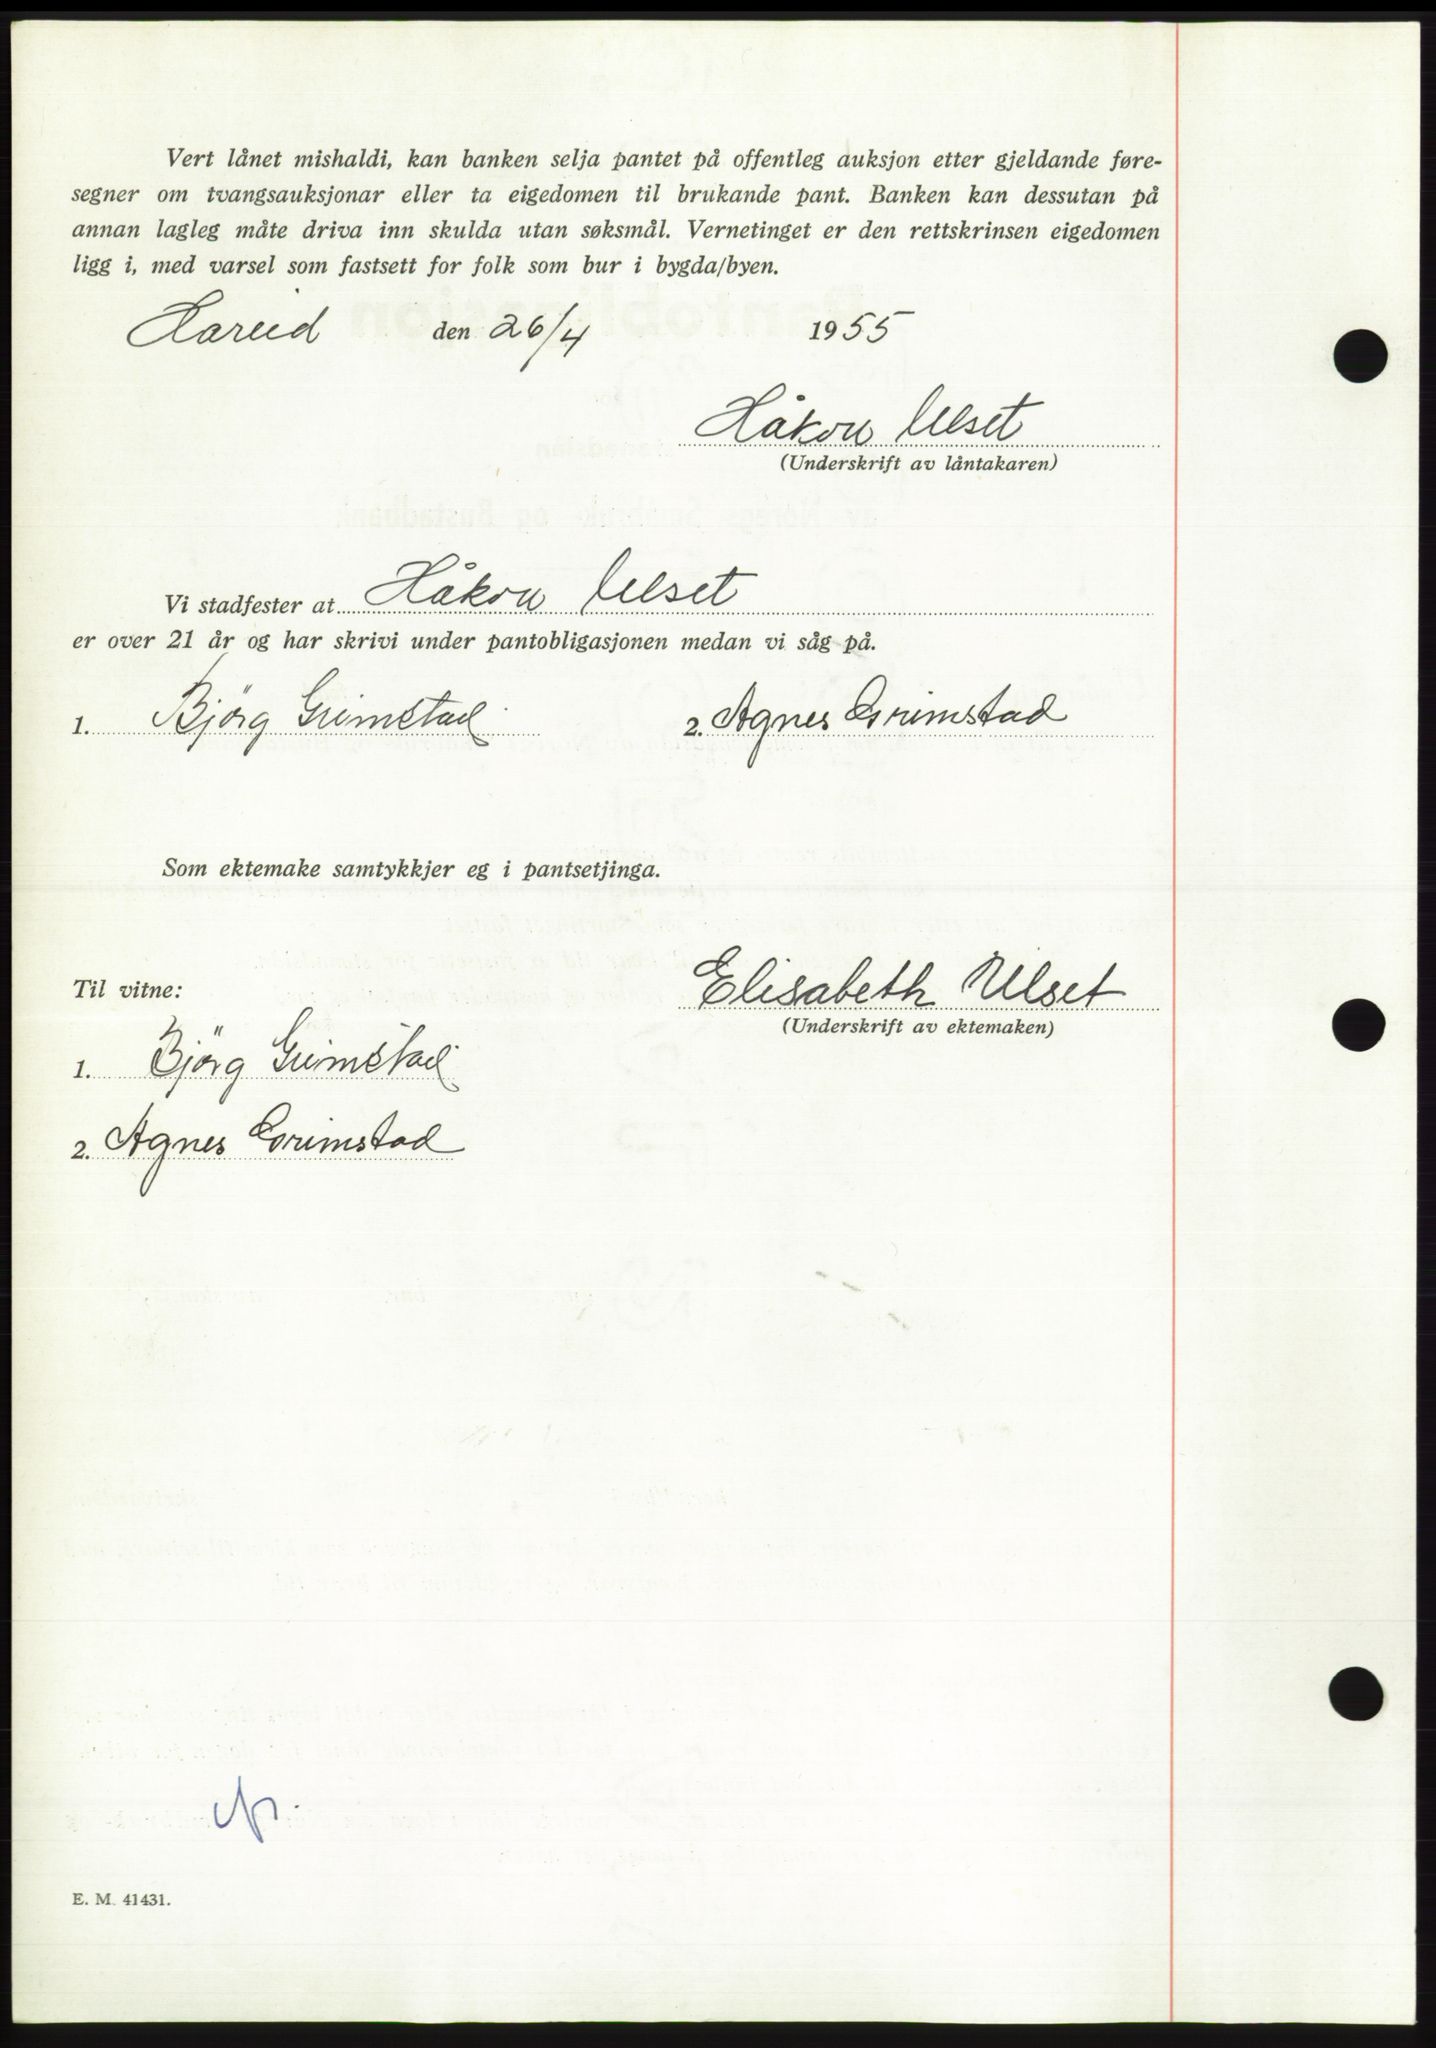 Vert lånet mishaldi, kan banken selja pantet på offentleg auksjon etter gjeldande føre-
segner om tvangsauksjonar eller ta eigedomen til brukande pant. Banken kan dessutan på
annan lagleg måte driva inn skulda utan søksmål. Vernetinget er den rettskrinsen eigedomen
ligg i, med varsel som fastsett for folk som bur i bygda/byen.
Hareid den 26/4 1955
Håkon Ulset
(Underskrift av låntakaren)
Vi stadfester at Håkon Ulset
er over 21 år og har skrivi under pantobligasjonen medan vi såg på.
1. Björg Grimstad 2. Agnes Grimstad
Som ektemake samtykkjer eg i pantsetjinga.
Til vitne:
Elisabeth Ulset
(Underskrift av ektemaken)
1. Björg Grimstad
2. Agnes Grimstad
E. M. 41431.